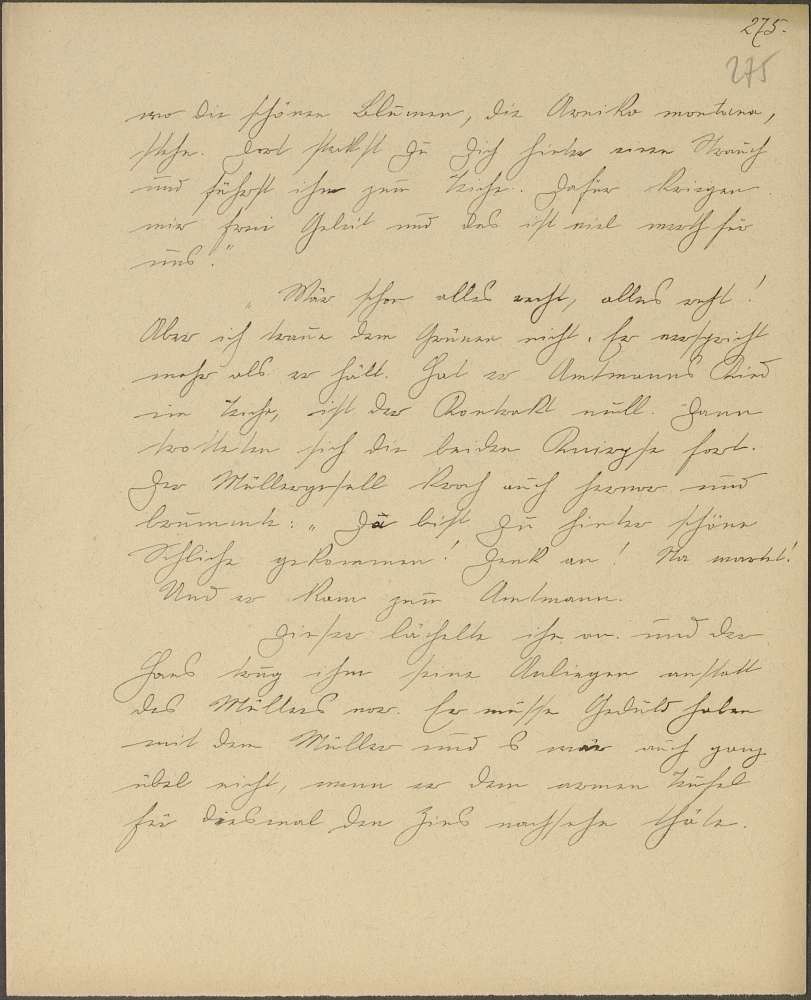 275.
275
wo die schönen Blumen, die Arnika montana,
stehn. Dort steckst Du Dich hinter einen Strauch
und führst ihn zum Teiche. Dafür kriegen
wir frei Geleit und das ist viel werth für
uns."
„Wär schon alles recht, alles recht!
Aber ich traue dem Grünen nicht. Er verspricht
mehr als er hält. Hat er Amtmanns Kind
im Teiche, ist der Kontrakt null. Dann
trotteten sich die beiden Knirpse fort.
Der Müllergesell kroch auch hervor und
brummte: „Da bist Du hinter schöne
Schliche gekommen! Denk an! Na wartet!
Und er kam zum Amtmann.
Dieser lächelte ihn an und der
Hans trug ihm seine Anliegen anstatt
des Müllers vor. Er müsse Geduld haben
mit dem Müller und s wär auch ganz
übel nicht, wenn er dem armen Teufel
für diesmal den Zins nachsehn thäte.